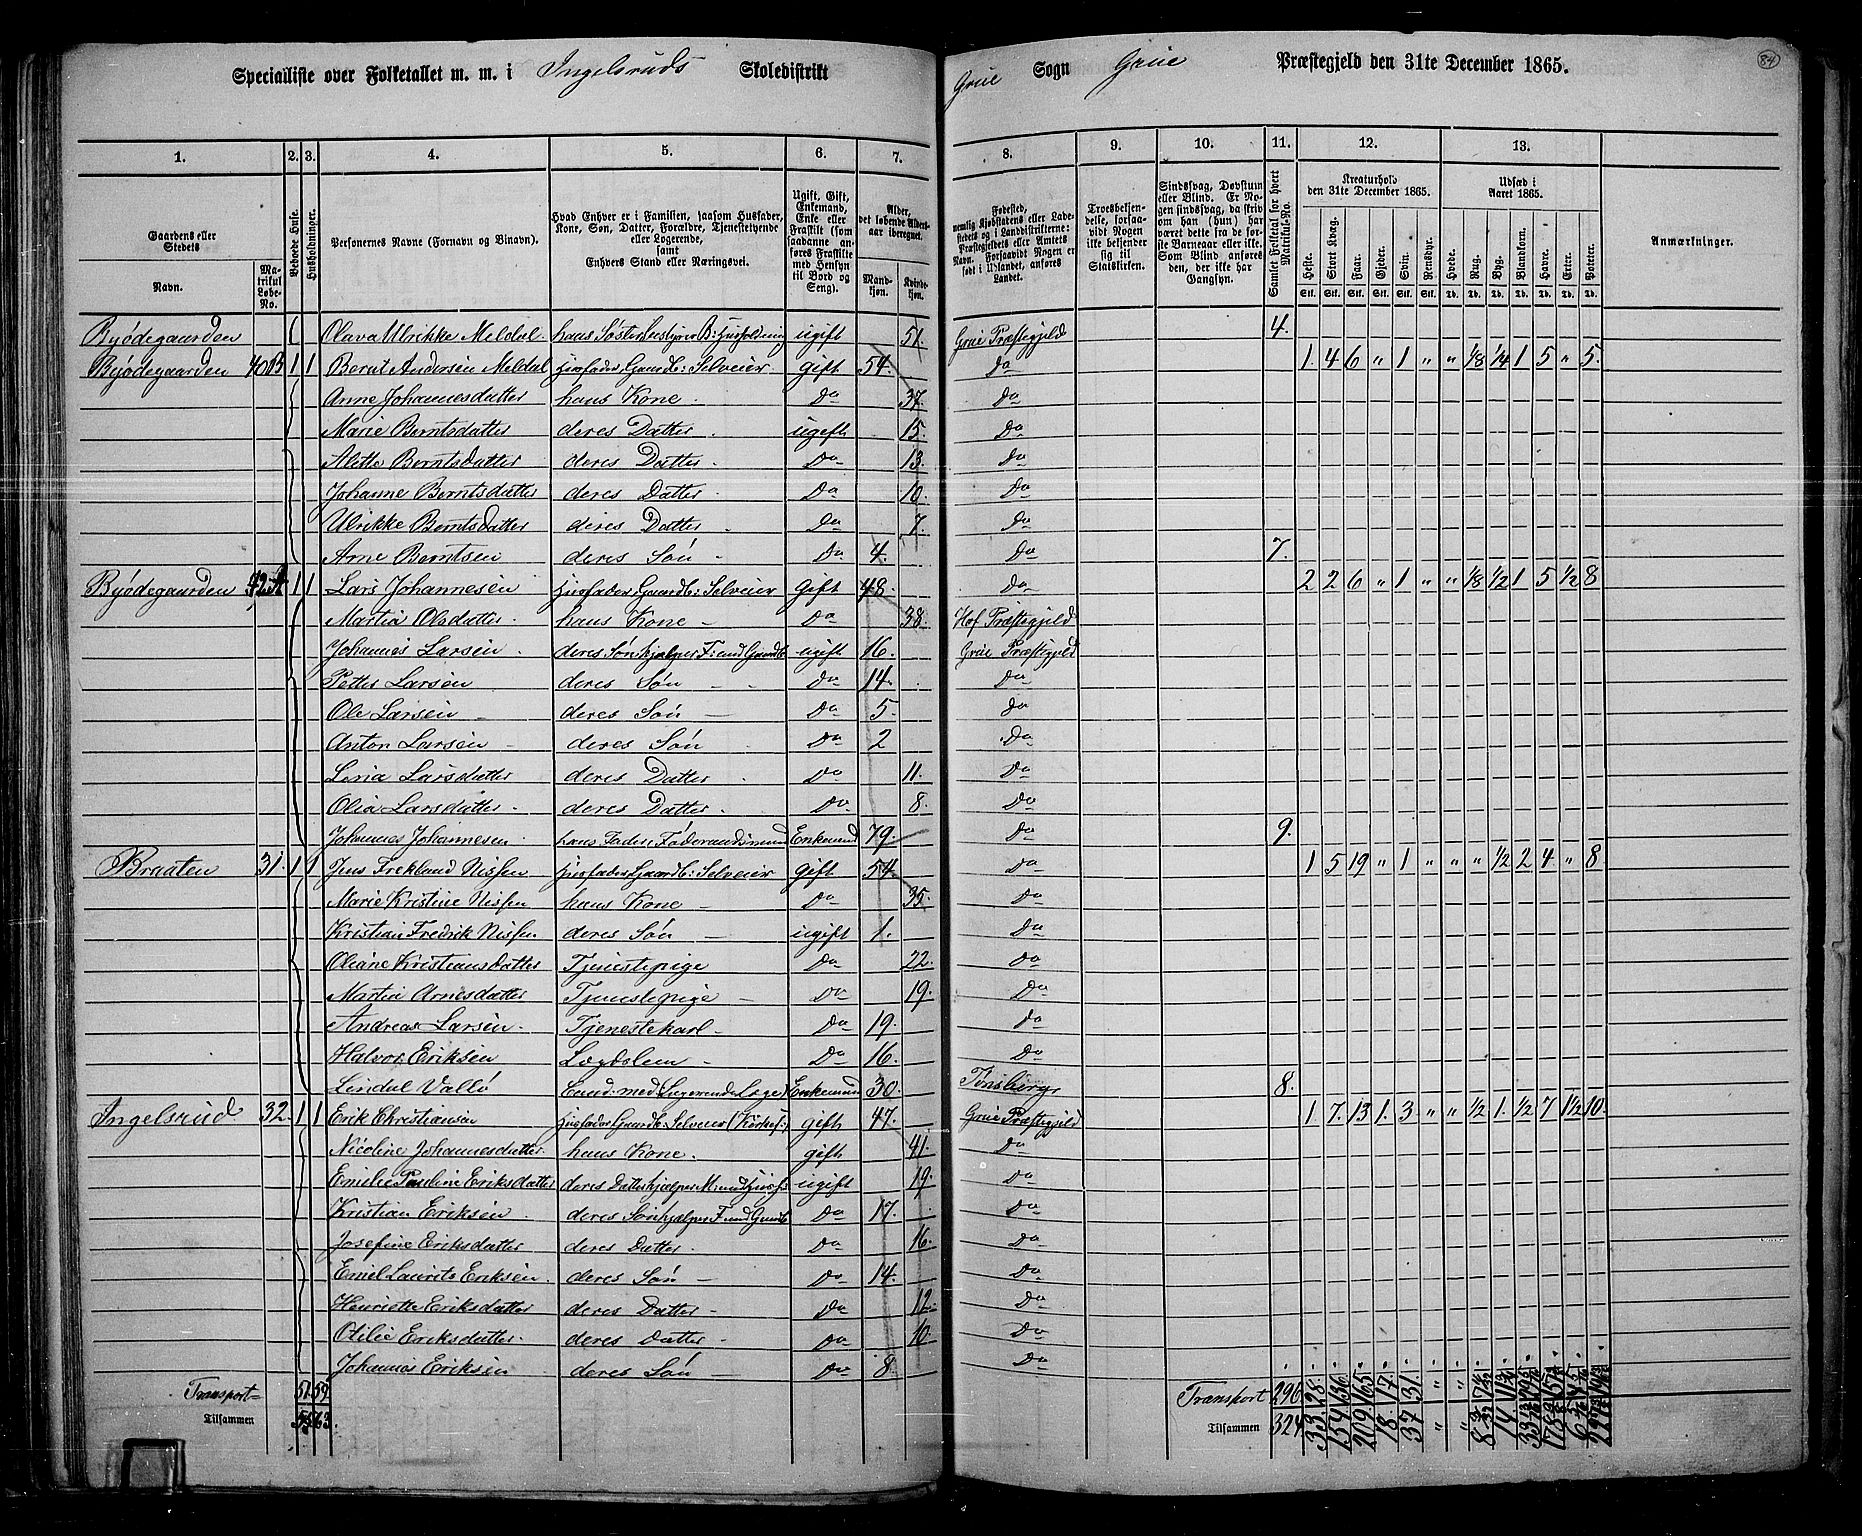 Specialliste over Folketallet m. m. i Ingelsruds Skoledistrikt Grue Sogn Grue Præstegjeld den 31te December 1865.
84
1. 2. 3. 4. 5. 6. 7. 8. 9. 10. 11. 12. 13.
Gaardens eller Stedets
Navn. Matrikul Løbe-No.
Beboede Huse.
Husholdninger.
Personernes Navne (Fornavn og Binavn).
Hvad Enhver er i Familien, saasom Husfader, Kone, Søn, Datter, Forældre, Tjenestetyende eller Logerende, samt Enhvers Stand eller Næringsvei.
Ugift, Gift, Enkemand, Enke eller Fraskilt (som saadanne anføres Fraskilte med Hensyn til Bord og Seng).
Alder, det løbende Aldersaar iberegnet.
Mandkjøn. Kvindekjøn.
Fødested, nemlig Kjøbstadens eller Ladestedets og i Landdistrikterne: Præstegjeldets eller Amtets Navn. Forsaavidt Nogen er født i Udlandet, anføres Landet.
Troesbekjendelse, forsaavidt Nogen ikke bekjender sig til Statskirken.
Sindssvag, Døvstum eller Blind. Er Nogen sindssvag, da skriv om han (hun) har været dette fra de første Barneaar eller ikke. Som Blind anføres den, der ikke har Gangsyn.
Samlet Folketal for hvert Matrikul-No.
Kreaturhold den 31te December 1865.
Heste. Stort Kvæg. Faar. Gjeder. Svin. Rensdyr.
Udsæd i Aaret 1865.
Hvede. Rug. Byg. Blandkorn. Havre. Erter. Poteter.
Anmærkninger.
Byødegaarden Olava Ulrikke Meldal hans Søster bestyrer B: Husholdning ugift 51. Grue Præstegjeld 4.
Byødegaarden 40B 1 1 Bernt Andersen Meldal Husfader Gaardb: Selveier gift 54. Do 1. 4 6 " 1 " " 1/8 1/4 1 5 " 5.
Anne Johannesdatter hans Kone Do 37. Do
Marie Berntsdatter deres Datter ugift 15. Do
Alette Berntsdatter deres Datter Do 13. Do
Johanne Berntsdatter deres Datter Do 10. Do
Ulrikke Berntsdatter deres Datter Do 7. Do
Arne Berntsen deres Søn Do 4. Do 7.
Byødegaarden 42A 1 1 Lars Johannesen Husfader Gaardb: Selveier gift 48. Do 2 2 6 " 1 " " 1/8 1/2 1 5 1/2 8
Martia Olsdatter hans Kone Do 38. Hof Præstegjeld
Johannes Larsen deres Søn hjælper F: med Gaardb ugift 16. Grue Præstegjeld
Petter Larsen deres Søn Do 14. Do
Ole Larsen deres Søn Do 5. Do
Anton Larsen deres Søn Do 2 Do
Lina Larsdatter deres Datter Do 11. Do
Olia Larsdatter deres Datter Do 8. Do
Johannes Johannesen hans Fader, Føderaadsmand Enkemand 79. Do 9.
Braaten 31. 1 1 Jens Frekland Nissen Husfader Gaardb: Selveier gift 54. Do 1 5 19 " 1 " " " 1/2 2 4 " 8
Marie Kristine Nissen hans Kone Do 35. Do
Kristian Fredrik Nissen deres Søn ugift 1. Do
Oliane Kristiansdatter Tjenestepige Do 22. Do
Martia Arnesdatter Tjenestepige Do 19. Do
Andreas Larsen Tjenestekarl Do 19. Do
Halvor Eriksen Lægdslem Do 16. Do
Lindal Vallø Enkemand 30. Tønsberg 8.
Ingelsrud 32. 1 1 Erik Christiansen Husfader Gaardb. Selveier gift 47. Grue Præstegjeld 1. 7. 13 1. 3. " " 1/2 1. 1/2 7 1 1/2 10.
Nicoline Johannesdatter hans Kone. gift 41. Do
Emilie Pauline Eriksdatter deres Datter hjælper M: ugift 19. Do
Kristian Eriksen deres Søn hjælper F. med Gaardb Do 17. Do
Josefine Eriksdatter deres Datter Do 16. Do
Emil Laurits Eriksen deres Søn Do 14. Do
Henriette Eriksdatter deres Datter Do 12. Do
Otilie Eriksdatter deres Datter Do 10 Do
Johannes Eriksen deres Søn Do 8. Do
Transport 51. 59. Transport 296 28. 136 165 17. 31. " "
Tilsammen 55 63. Tilsammen 324. 33. 154 209 18. 37 " "